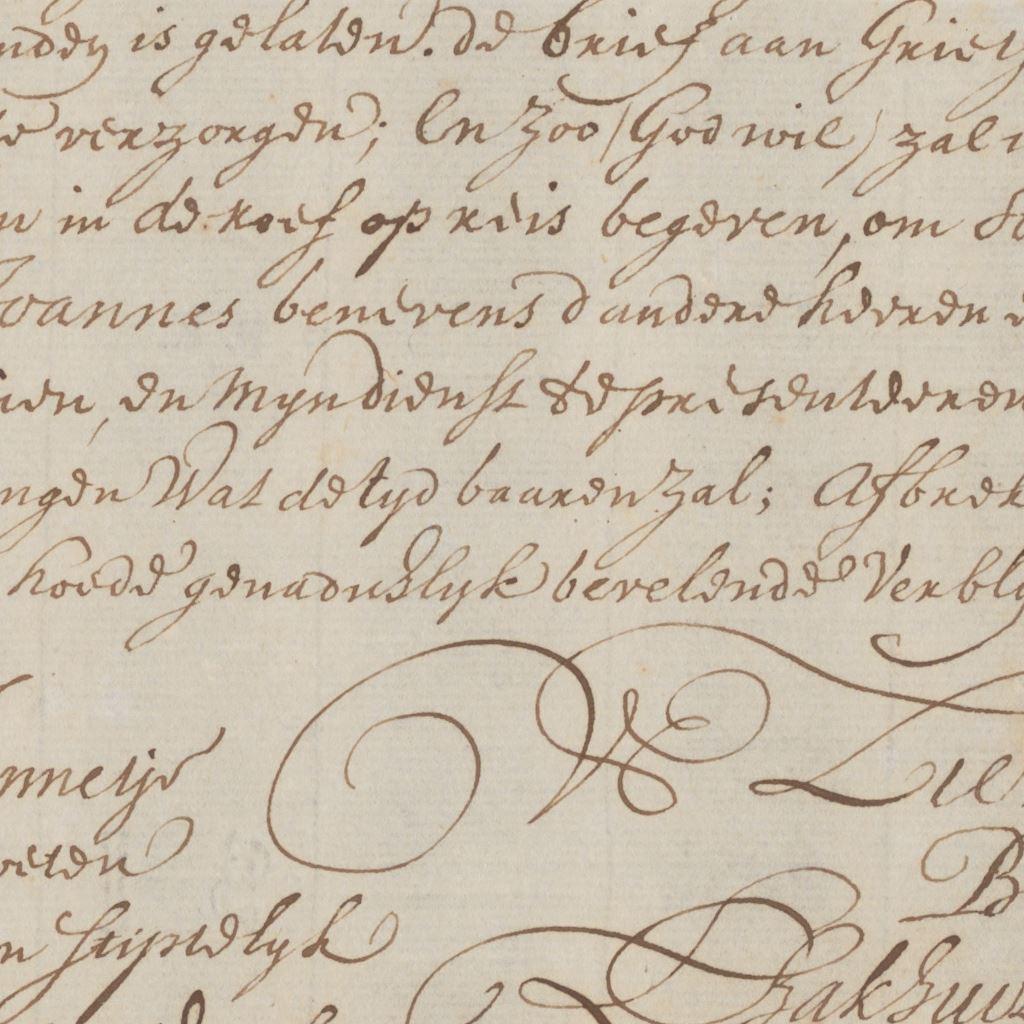 nden is gelaten. de brief aan Griet
te verzorgen; En zoo (God wil) zal i
n in de roef op reis begeven, om
Joannes benevens d'andere heeren
ien, en Myn dienst te presenteeren
ngen Wat de tyd baaren zal; Afbrek
hoede genaduslyk bevelende Verbly
nnetje
oeten W Lie
n stiptelyk B
Isak Zuid